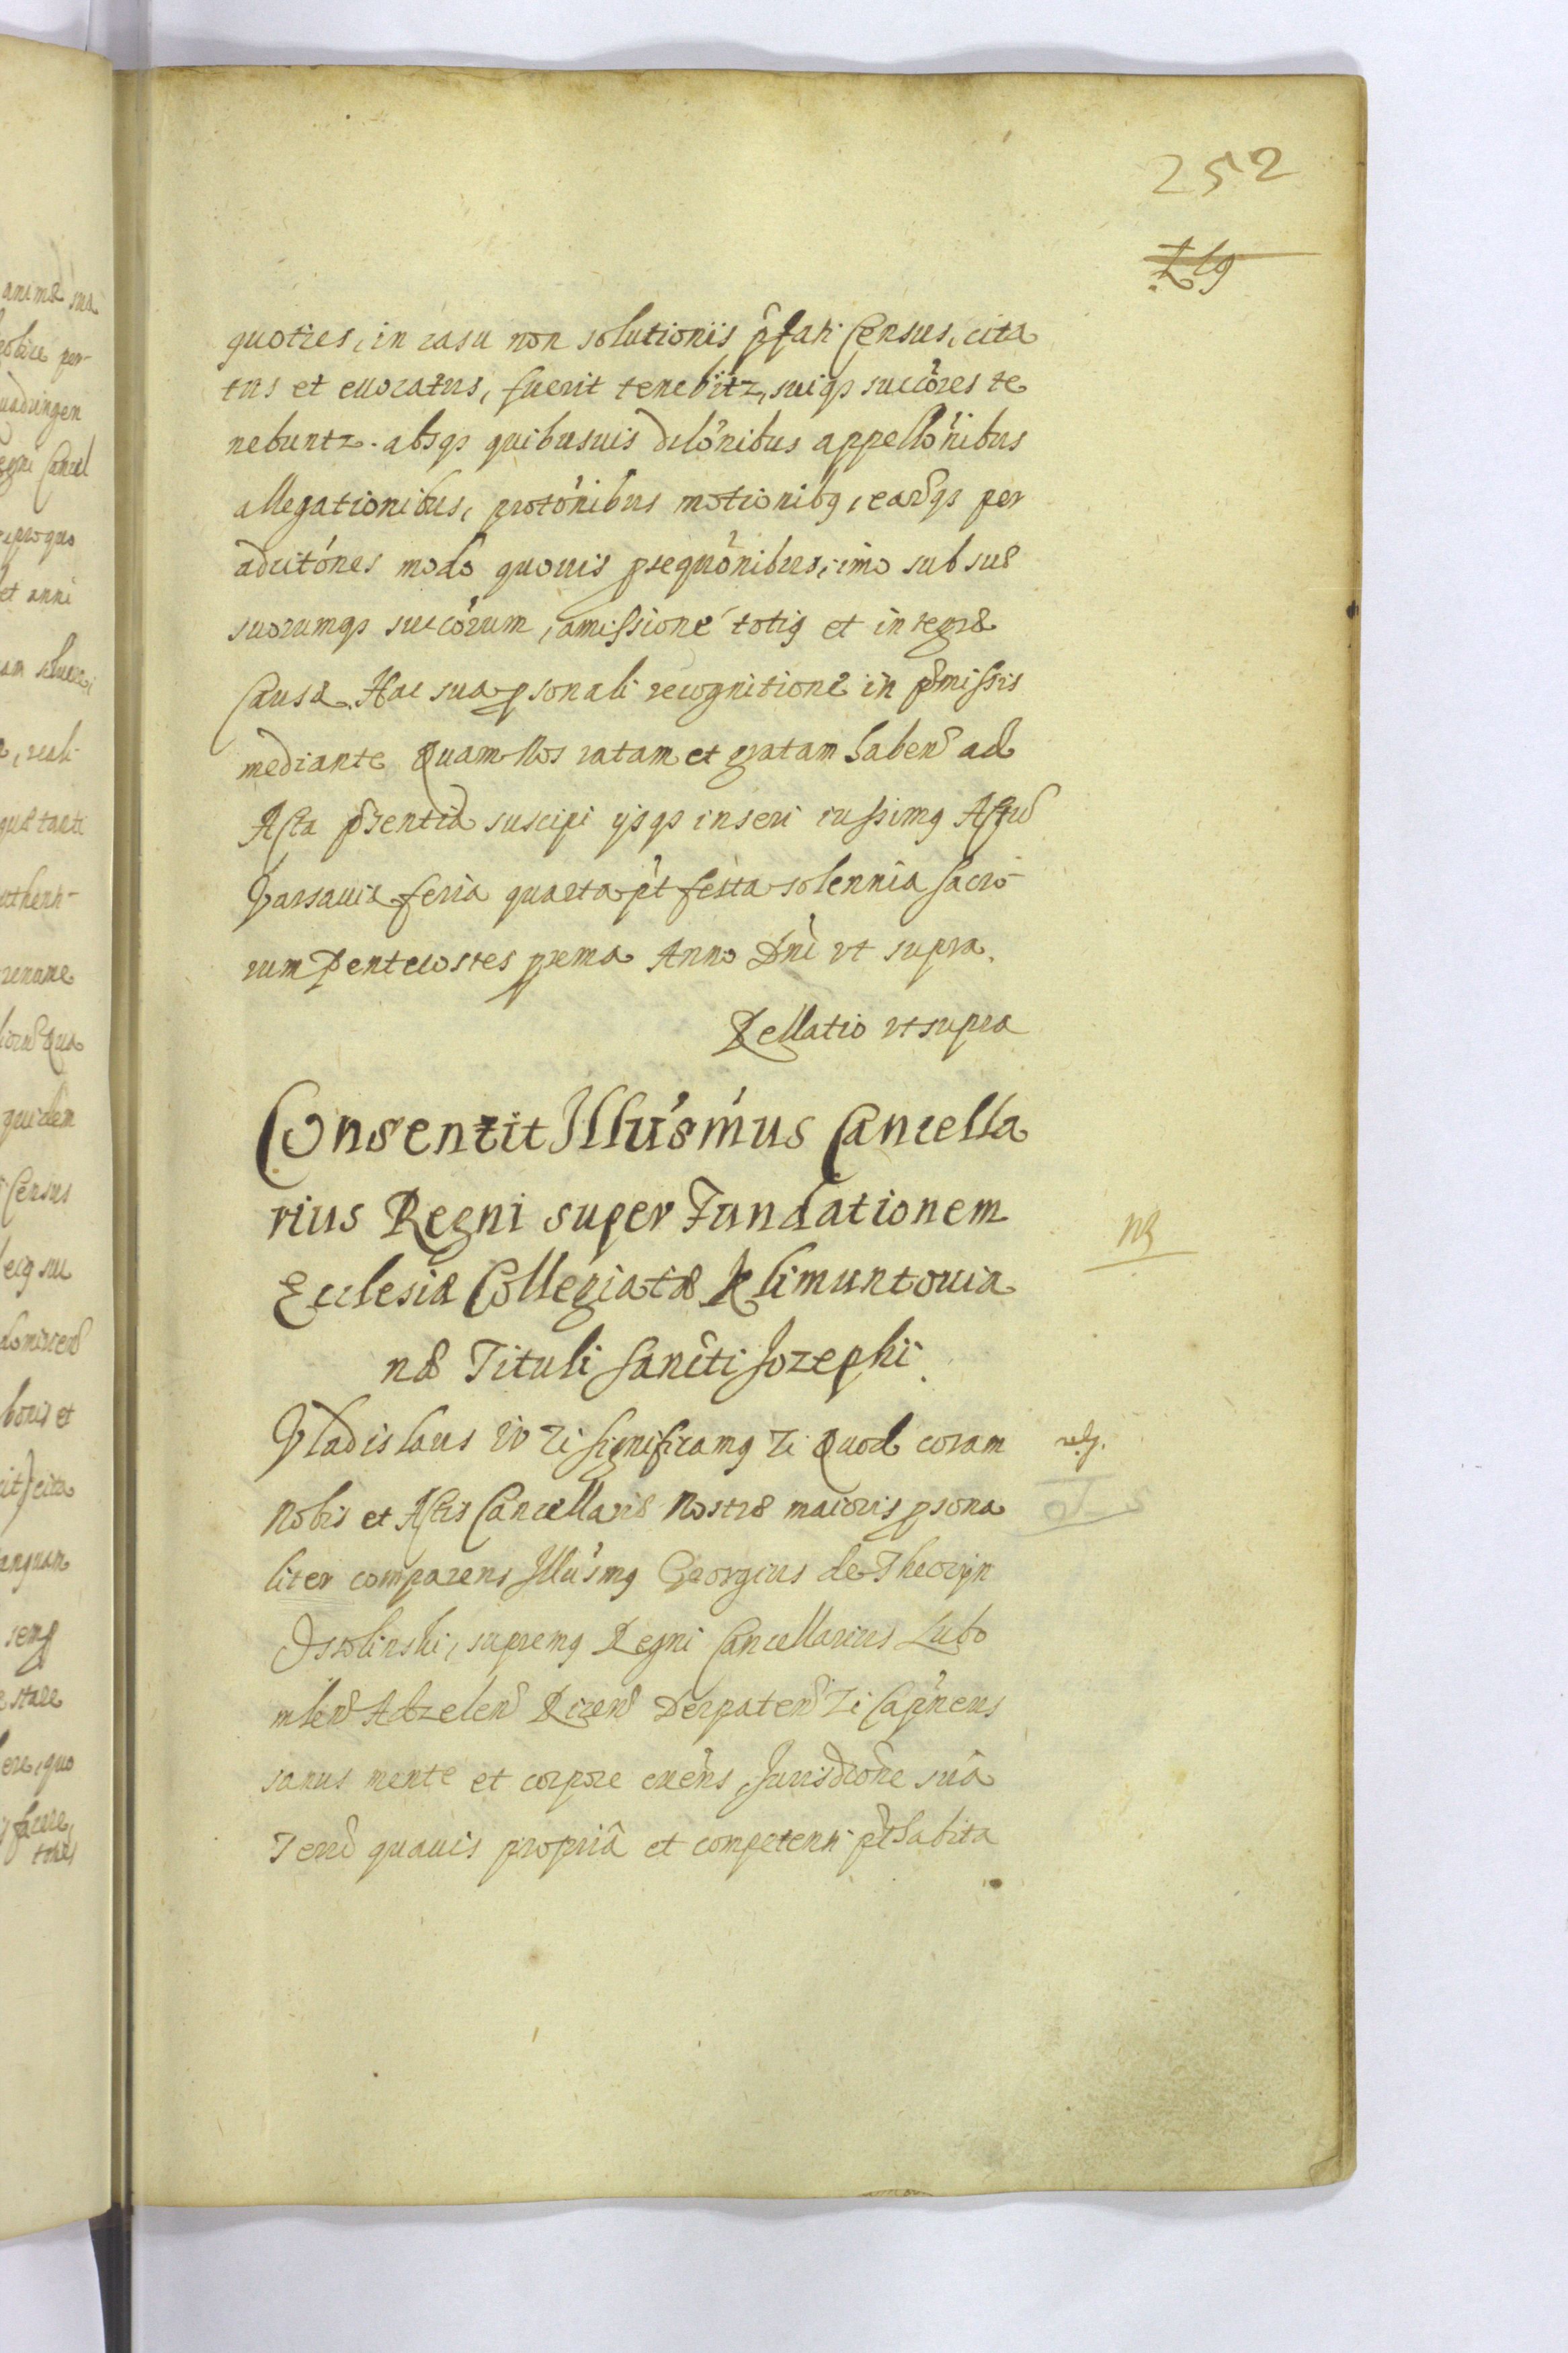 252
219
quoties, in casu non solutionis p̃fati Census, cita
tus et euocatus, fuerit tenebitz, suiqз succ̃ores te
nebuntz. absqз quibusuis dilõnibus appellõnibus
allegationibus, protõnibus motionibꝯ, earũqз per
aducitõnes modo quouis psequõnibus, imo sub suæ
suorumqз succõrum, amissionẽ totiꝯ et integræ
Causæ. Hac sua psonali recognitione in p̃missis
mediante Quam Nos ratam et gratam haben̄ ad
Acta p̃sentia suscipi ysqз inseri iussimꝯ Actũ
Varsauiæ feria quarta p̃t festa solennia Sacro-
rum Pentecostes prxma Anno Dnĩ vt supra.
Rellatio vt supra
Consentit Illũsmus Cancella
rius Regni super Fundationem
Ecclesiæ Collegiatæ Klimuntouia
næ Tituli Sancti Jozephi.
NB
Vladislaus IV Zi Significamꝯ Zi Quod coram
nobis et Actis Cancellariæ Nostræ maioris psona
liter comparens Illũsmꝯ Georgius de Theczyn
Ossolinski, supremꝯ Regni Cancellarius Lubo
mlen̄ Adzelen̄ Ricen̄ Derpaten̄ Zi Cap̃neus
sanus mente et corpore exẽns, Jurisdicõne suâ
Terr̃ quauis propriâ et competenti p̃thabita
anima sua
uadringen
Regni Cancel
et anni
reali
quidem
Census
bonis et
cita
quo